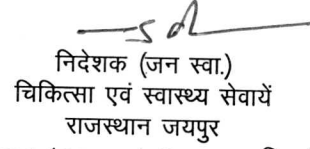 निदेशक (जन स्वा.)
चिकित्सा एवं स्वास्थ्य सेवायें
राजस्थान जयपुर